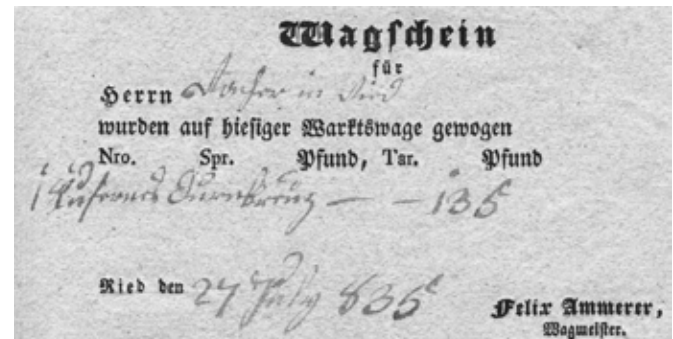 Wagschein
für
Herrn Dacher in Ried
wurden auf hiesiger Marktswage gewogen
Nro. Spr. Pfund, Tar. Pfund
1 — — 135
Ried den 27 July 835
Felix Ammerer,
Wagmeister.